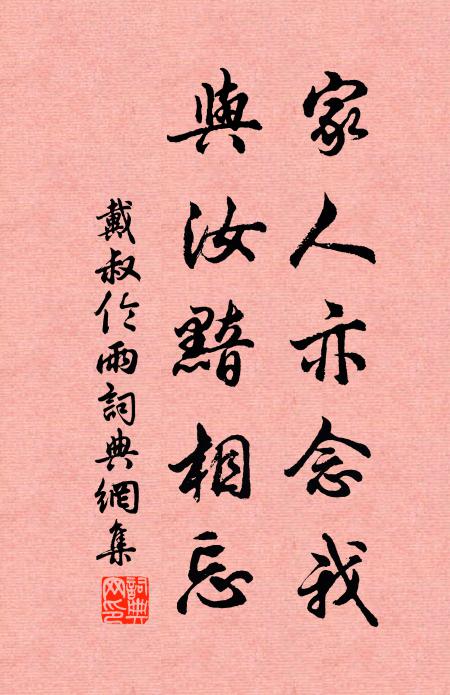 家人亦念我
與汝黯相忘
戴叔伦雨詞典網集
詞典網印